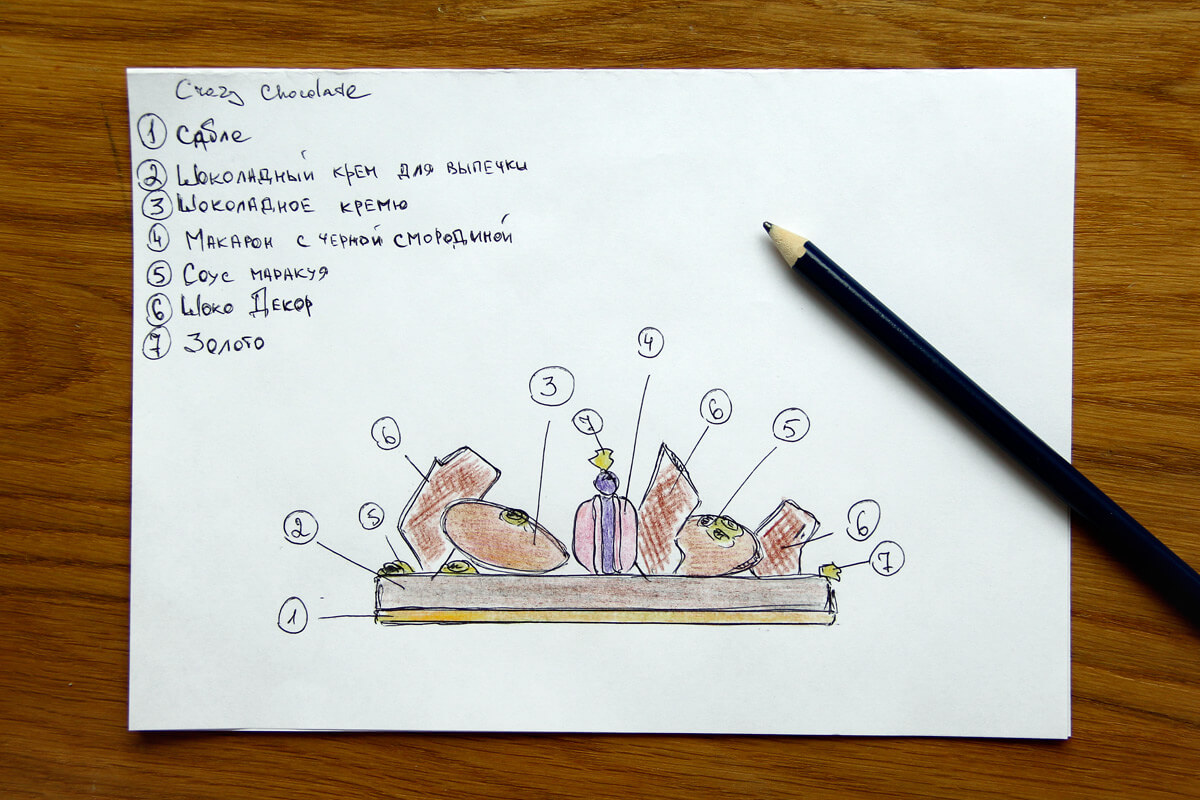 Crazy Chocolate
1 Сабле
2 Шоколадный крем для выпечки
3 Шоколадное кремю
4 Макарон с черной смородиной
5 Соус маракуя
6 Шоко Декор
7 Золото
4
3
6
7
5
6
2
5
6
7
1